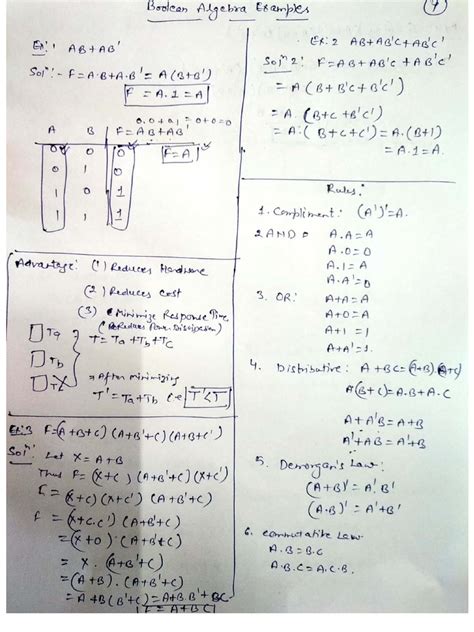 Boolean Algebra Examples
Ex:1 AB+AB'
Solⁿ:- F=A.B+A.B'=A(B+B')
F=A.1=A
0.0+0.1=0+0=0
A B F=AB+AB'
0 0 0
0 1 0
1 0 1
1 1 1
F=A
Advantage: (1) Reduces Hardware
(2) Reduces cost
(3) Minimize Response Time
(Reduces Power Dissipation)
Ta
Tb
Tc
T=Ta+Tb+Tc
After minimizing
T'=Ta+Tb i.e T'<T
Ex:3 F=(A+B+C)(A+B'+C)(A+B+C')
Solⁿ: Let X=A+B
Thus F=(X+C)(A+B'+C)(X+C')
F=(X+C)(X+C')(A+B'+C)
F=(X+C.C')(A+B'+C)
=(X+0).(A+B'+C)
=X.(A+B'+C)
=(A+B).(A+B'+C)
=A+B(B'+C)=A+B.B'+BC
F=A+BC
Ex:2 AB+AB'C+AB'C'
Solⁿ2: F=AB+AB'C+AB'C'
=A(B+B'C+B'C')
=A.(B+C+B'C')
=A.(B+C+C')=A.(B+1)
=A.1=A.
Rules:
1. Compliment: (A')'=A.
2 AND: A.A=A
A.0=0
A.1=A
A.A'=0
3. OR: A+A=A
A+0=A
A+1=1
A+A'=1.
4. Distributive: A+BC=(A+B).(A+C)
A(B+C)=A.B+A.C
A+A'B=A+B
A'+AB=A'+B
5. Demorgan's Law:
(A+B)'=A'.B'
(A.B)'=A'+B'
6. Commutative Law
A.B=B.C
A.B.C=A.C.B.